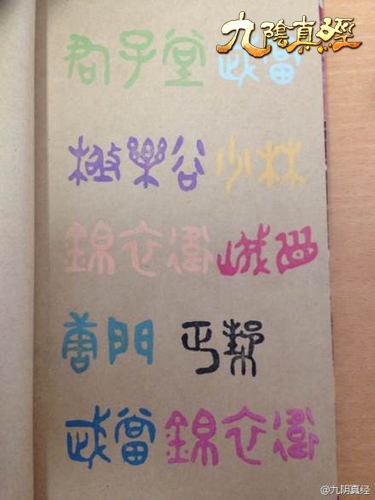 九陰真經
君子堂 武當
極樂谷 少林
錦衣衛 峨眉
唐門 丐幫
武當 錦衣衛
@九阴真经